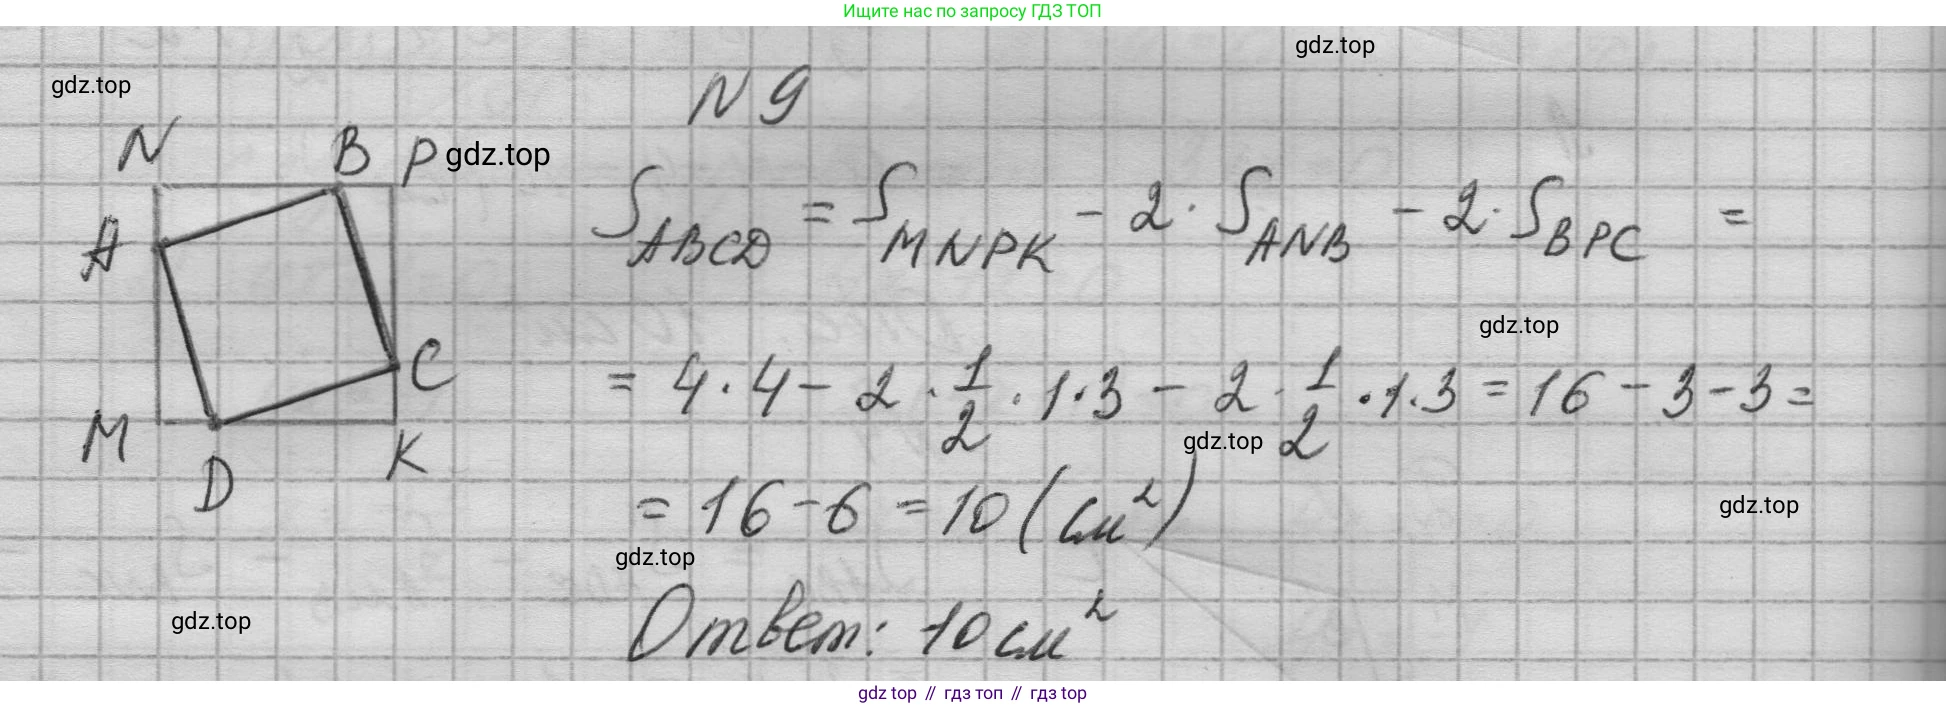 Ищите нас по запросу ГДЗ ТОП
gdz.top
gdz.top
N 9
N B P gdz.top
S_ABCD = S_MNPK - 2 · S_ANB - 2 · S_BPC =
A
gdz.top
C
= 4 · 4 - 2 · 1/2 · 1 · 3 - 2 · 1/2 · 1 · 3 = 16 - 3 - 3 =
M K
gdz.top
D
= 16 - 6 = 10 (см²)
gdz.top
gdz.top
gdz.top
Ответ: 10 см²
gdz top // гдз топ // gdz top